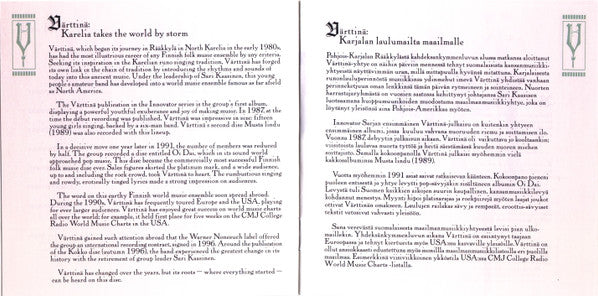 Värttinä:
Karelia takes the world by storm
Värttinä, which began its journey in Rääkkylä in North Karelia in the early 1980s,
has had the most illustrious career of any Finnish folk music ensemble by any criteria.
Seeking its inspiration in the Karelian runo singing tradition, Värttinä has forged
its own link in the chain of tradition by introducing the rhythms and sounds of
today into this ancient music. Under the leadership of Sari Kaasinen, this young
people's amateur band has developed into a world music ensemble famous as far afield
as North America.
The Värttinä publication in the Innovator series is the group's first album,
displaying a powerful youthful exuberance and joy of making music. In 1987, at the
time the debut recording was published, Värttinä was impressive in size: fifteen
young girls singing, backed by a six-man band. Värttinä's second disc Musta lindu
(1989) was also recorded with this lineup.
In a decisive move one year later in 1991, the number of members was reduced
by half. The group recorded a disc entitled Oi Dai, which in its sound world
approached pop music. This disc became the commercially most successful Finnish
folk music disc ever. Sales figures skirted the platinum mark, and a wide audience,
up to and including the rock crowd, took Värttinä to heart. The rumbustious singing
and rowdy, erotically tinged lyrics made a strong impression on audiences.
The word on this earthy Finnish world music ensemble soon spread abroad.
During the 1990s, Värttinä has frequently toured Europe and the USA, playing
for ever larger audiences. Värttinä has enjoyed great success on world music charts
all over the world: for example, it held first place for five weeks on the CMJ College
Radio World Music Charts in the USA.
Värttinä gained such attention abroad that the Warner Nonesuch label offered
the group an international recording contract, signed in 1996. Around the publication
of the Kokko disc (autumn 1996), the band experienced the greatest change in its
history with the retirement of group leader Sari Kaasinen.
Värttinä has changed over the years, but its roots — where everything started —
can be heard on this disc.
Värttinä:
Karjalan laulumailta maailmalle
Pohjois-Karjalan Rääkkylästä kahdeksankymmenluvun alussa matkansa aloittanut
Värttinä-yhtye on näihin päiviin mennessä tehnyt suomalaisista kansanmusiikki-
yhtyeistä näyttävimmän uran, millä mittapuulla hyvänsä mitattuna. Karjalaisesta
runonlauluperinteestä musiikkinsa ydinmehut imevä Värttinä yhdistää vanhaan
perinneketjuun oman lenkkinsä tämän päivän rytmeineen ja sointeineen. Nuorten
harrastajaryhmästä on vuosien saatossa kehittynyt johtajansa Sari Kaasisen
luotsaamana huippumuusikoiden muodostama maailmanmusiikkiyhtye, joka on
löytänyt yleisönsä aina Pohjois-Amerikkaa myöten.
Innovator Sarjan ensimmäinen Värttinä-julkaisu on kuitenkin yhtyeen
ensimmäinen albumi, jossa kuuluu vahvana nuoruuden riemu ja soittamisen ilo.
Vuonna 1987 debyytin julkaisun aikaan, Värttinä oli vaikuttava jo kooltaankin:
viisitoista laulavaa nuorta tyttöä ja heitä säestämässä kuuden nuoren miehen
soittajisto. Samalla kokoonpanolla Värttinä julkaisi myöhemmin vielä
kakkosalbuminsa Musta lindu (1989).
Vuotta myöhemmin 1991 asiat saivat ratkaisevan käänteen. Kokoonpano pieneni
puoleen entisestä ja yhtye levytti pop-sävyjäkin sisältäneen albumin Oi Dai.
Levystä tuli Suomen kaikkien aikojen suurin kaupallinen, kansanmusiikkilevyä
kohdannut menestys. Myynti hipoi platinarajaa ja rockpiirejä myöten laajat joukot
ottivat Värttinän omakseen. Laulujen railakas sävy ja rempseät, eroottis-sävyiset
tekstit vetosivat vahvasti yleisöön.
Sana verevästä suomalaisesta maailmanmusiikkiyhtyeestä levisi pian ulko-
maillekin. Yhdeksänkymmenluvun aikana Värttinä on esiintynyt taajaan
Euroopassa ja tehnyt kiertueita myös USA:ssa kasvaville yleisöille. Värttinä on
ollut ansiokkaan menestyksen myös maailmanmusiikkilistoilla eri puolilla
maailmaa. Esimerkkinä viisiviikkoinen ykköstila USA:ssa CMJ College Radio
World Music Charts -listalla.